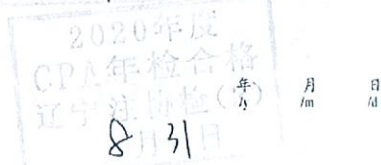 2020年度
CPA年检合格
辽宁注协检(　)
8月31日
年 月 日
/y /m /d